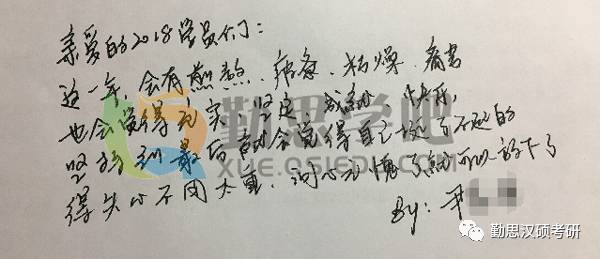 亲爱的2018学员们：
这一年，会有煎熬、疲惫、枯燥、痛苦
也会觉得充实、坚定、感动、快乐，
坚持到最后就会觉得自己挺了不起的
得失心不用太重，问心无愧了就可以放下了
By：尹
勤思学吧
XUE.QISIEDU.COM
勤思汉硕考研